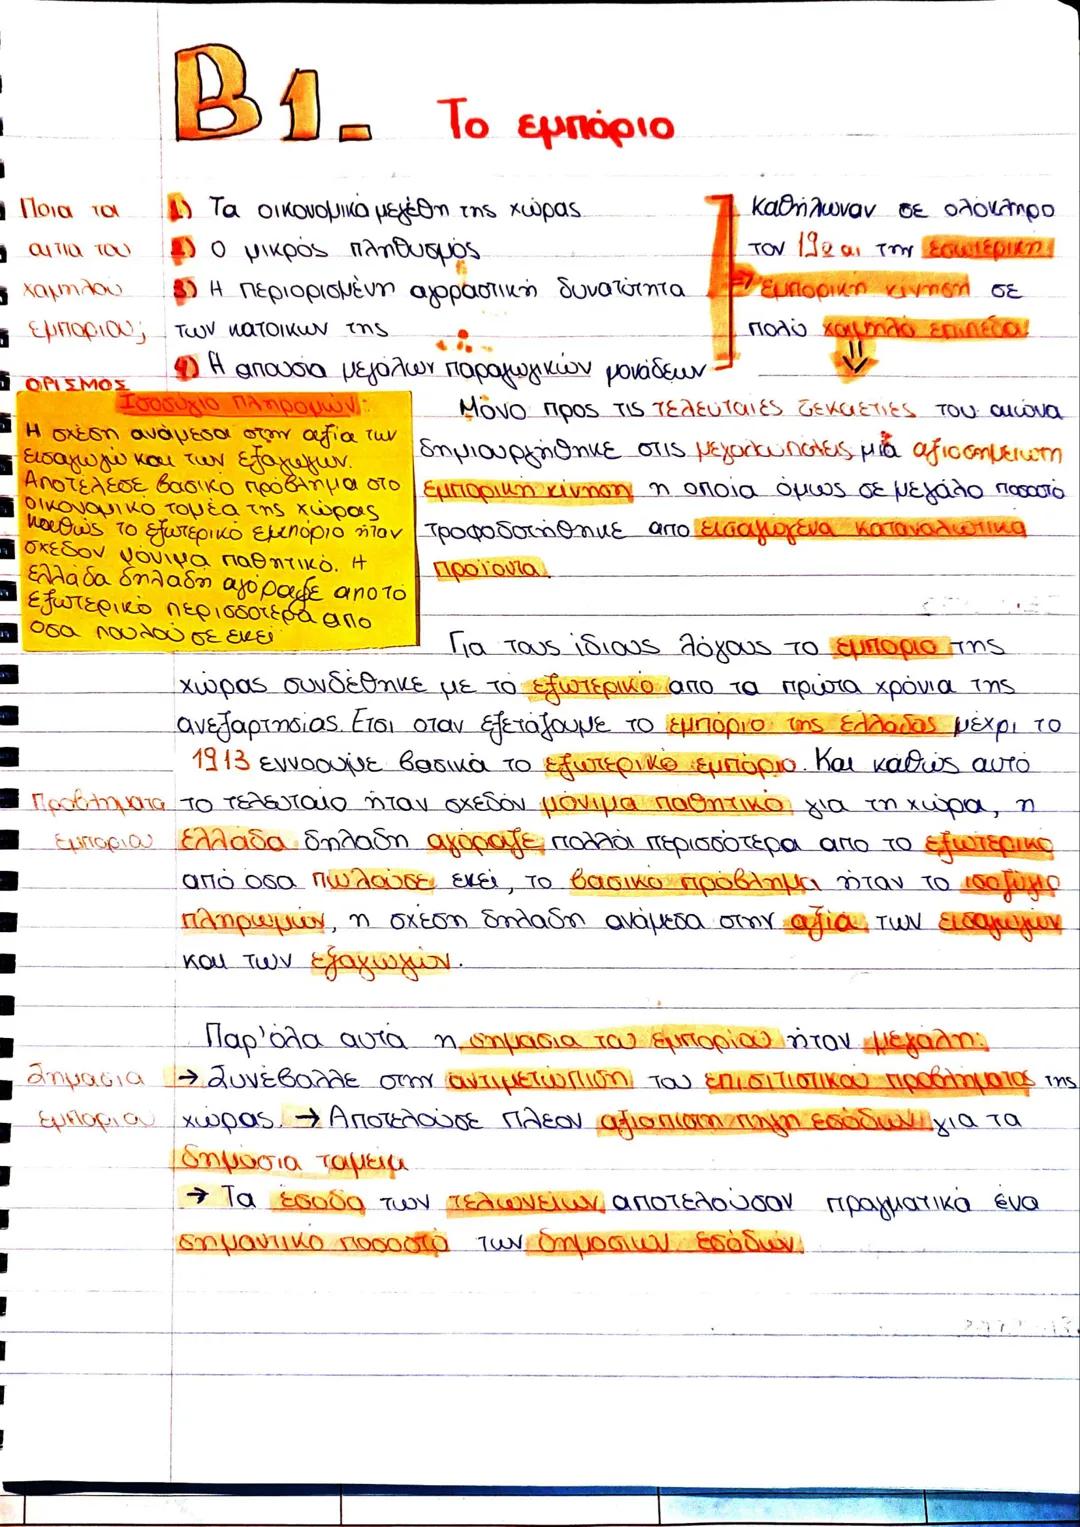 Β1. Το εμπόριο
Ποια τα
αιτια του
χαμηλου
εμποριου;
1) Τα οικονομικά μεγέθη της χώρας
2) Ο μικρός πληθυσμός
3) Η περιορισμένη αγοραστική δυνατότητα
των κατοικων της
4) Η απουσία μεγάλων παραγωγικών μονάδεων
καθήλωναν σε ολόκληρο
τον 19ο αι την εσωτερική
εμπορική κίνηση σε
πολύ χαμηλά επιπεδα
ΟΡΙΣΜΟΣ
Ισοζύγιο Πληρομών:
Η σχέση ανάμεσα στην αξία των
εισαγωγώ και των εξαγωγων.
Αποτέλεσε βασικό πρόβλημα στο
οικονομικό τομέα της χώρας
καθώς το εξωτερικό εμπόριο ήταν
σχεδον μόνιμα παθητικό. Η
ελλάδα δηλαδη αγόραζε απο το
εξωτερικό περισσοτερα απο
οσα πουλου σε εκει
Μόνο προς τις τελευταιές δεκαετίες του αιώνα
δημιουργήθηκε στις μεγαλουπολεις μιά αξιοσημειωτη
εμπορική κίνηση η οποία όμως σε μεγάλο ποσοστό
τροφοδοτήθηκε απο εισαγωγενα καταναλωτικα
προϊοντα.
Για τους ίδιους λόγους το εμποριο της
χώρας συνδέθηκε με τό εξωτερικό απο τα πρώτα χρόνια της
ανεξαρτησιας. Ετσι οταν εξετάζουμε το εμπόριο της ελλαδας μέχρι το
1913 εννοουμε βασικά το εξωτερικό εμπόριο. Και καθώς αυτό
Προβληματα
εμποριου
το τελευταιο ήταν σχεδόν μόνιμα παθητικό για τη χώρα, η
ελλάδα δηλαδή αγόραζε πολλά περισσότερα απο το εξωτερικο
από όσα πωλούσε εκεί, το βασικο πρόβλημα ήταν το ισοζύγιο
πληρωμων, η σχέση δηλαδη ανάμεσα στην αξία των εισαγωγων
και των εξαγωγών.
Παρ'όλα αυτά η σημασια του εμπορίου ήταν μεγαλη:
Σημασια
εμποριου
→ Συνέβαλλε στην αντιμετώπιση του επισιτιστικου προβληματος της
χώρας. → Αποτελούσε πλεον αξιοπιστη πηγη εσόδων για τα
δημόσια ταμεια
→ Τα έσοδα των τελωνείων αποτελούσαν πραγματικά ένα
σημαντικο ποσοστό των δημοσιων εσόδων.